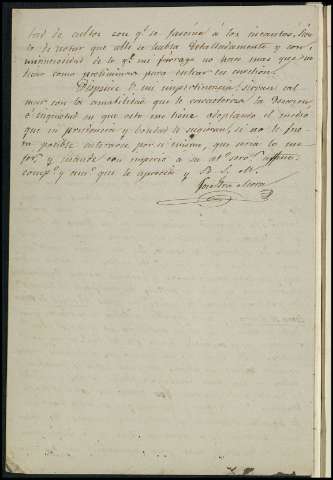 tad de cultos con q.e se fascina á los incautos, sien-
do de notar que allí se habla detalladamente y con
minuciosidad de lo q.e mi fárrago no hace mas que in-
dicar como preliminar para entrar en cuestion.
Dispense V. mi impertinencia; sirvase cal-
mar con la amabilidad que le caracteriza la
é inquietud en que esto me tiene adoptando el medio
que su prudencia y bondad le sugieran, si no le fue-
ra posible enterarse por sí mismo, que sería lo me-
jor; y mande con imperio a su at.o serv.r affmo.
comp.o y am.o que le aprecia y B. S. M.